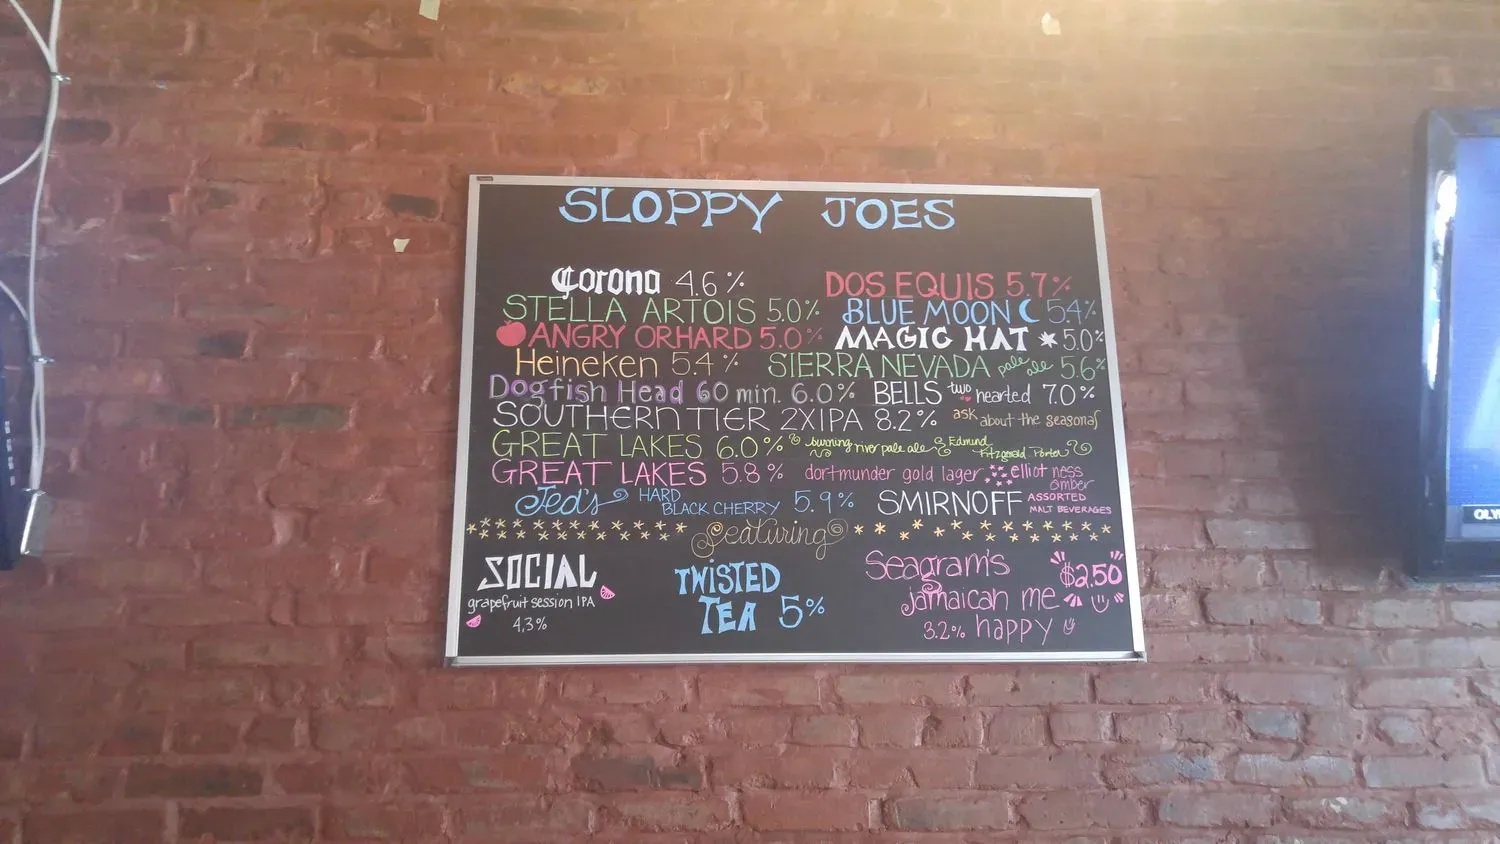 SLOPPY JOES
Corona 4.6% DOS EQUIS 5.7%
STELLA ARTOIS 5.0% BLUE MOON 5.4%
ANGRY ORHARD 5.0% MAGIC HAT 5.0%
Heineken 5.4% SIERRA NEVADA pale ale 5.6%
Dogfish Head 60 min. 6.0% BELLS two hearted 7.0%
SOUTHERN TIER 2XIPA 8.2% ask about the seasonal
GREAT LAKES 6.0% burning river pale ale & Edmund Fitzgerald Porter
GREAT LAKES 5.8% dortmunder gold lager elliot ness amber
Jed's HARD BLACK CHERRY 5.9% SMIRNOFF ASSORTED MALT BEVERAGES
featuring
SOCIAL
grapefruit session IPA
4.3%
TWISTED
TEA 5%
Seagram's $2.50
jamaican me
3.2% happy
OLY